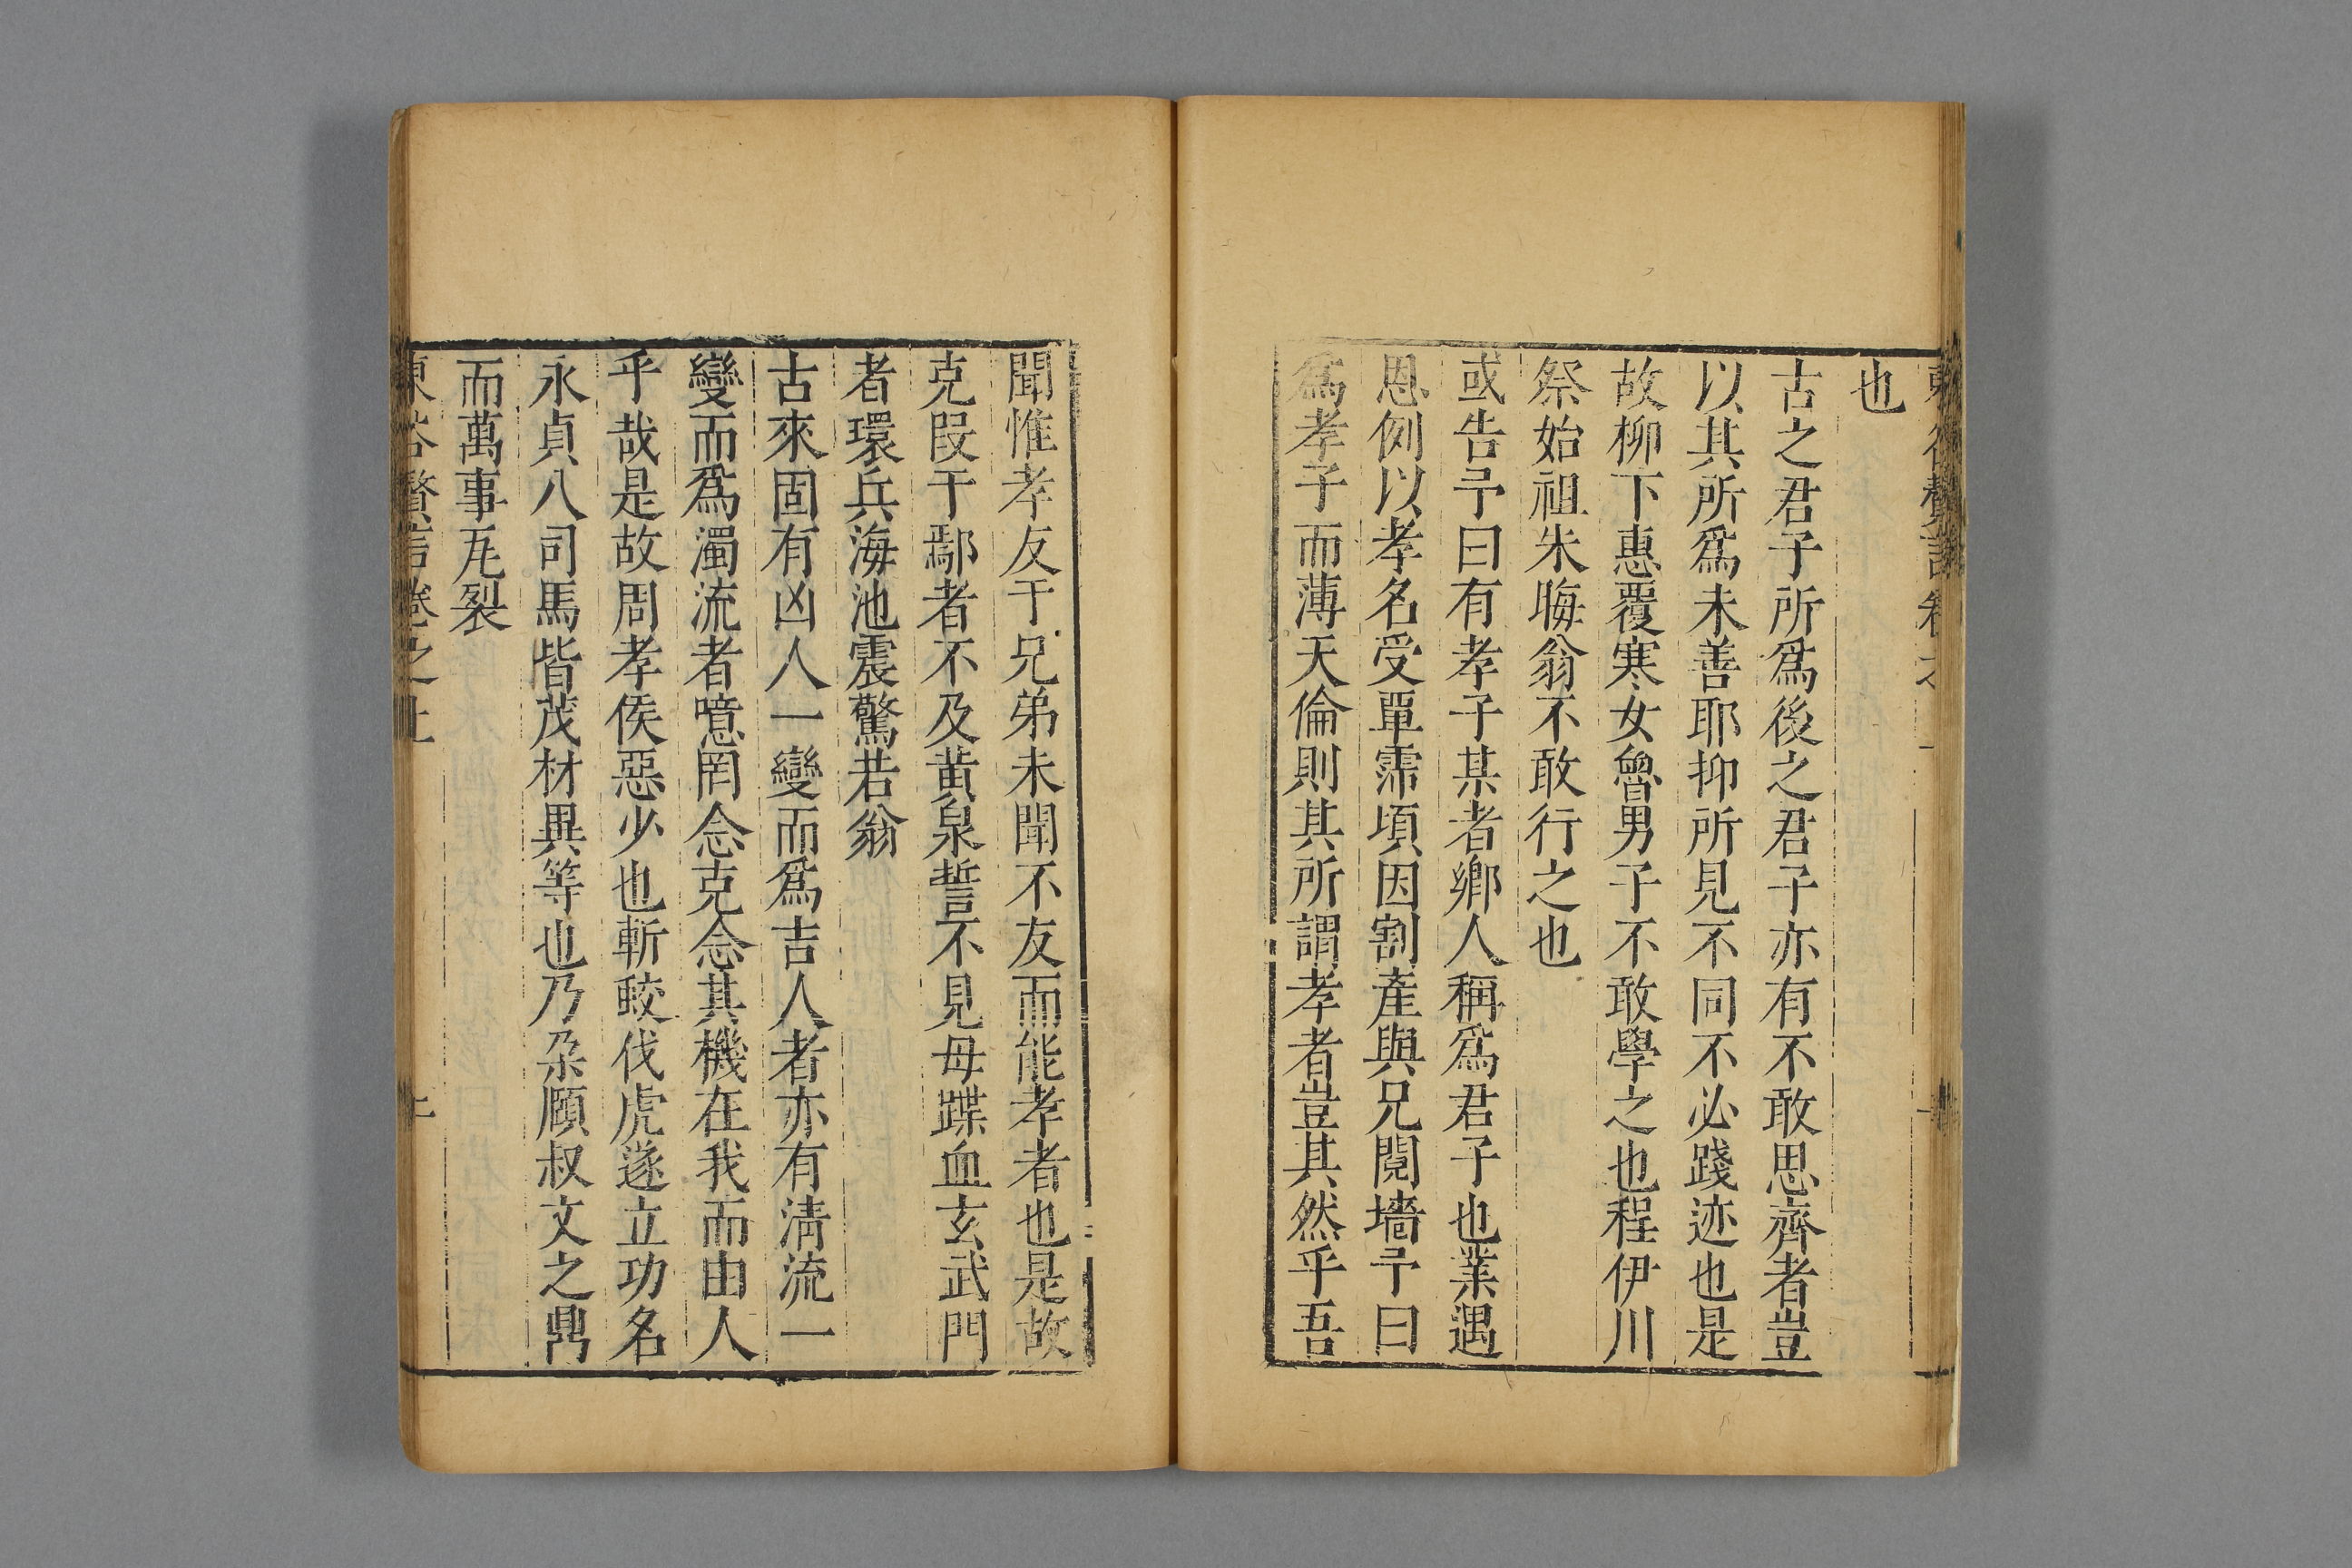 也
古之君子所爲後之君子亦有不敢思齊者豈
以其所爲未善耶抑所見不同不必踐迹也是
故柳下惠覆寒女魯男子不敢學之也程伊川
祭始祖朱晦翁不敢行之也
或告予曰有孝子某者鄉人稱爲君子也業遇
恩例以孝名受覃霈頃因割產與兄鬩墻予曰
爲孝子而薄天倫則其所謂孝者豈其然乎吾
聞惟孝友于兄弟未聞不友而能孝者也是故
克段于鄢者不及黃泉誓不見母蹀血玄武門
者環兵海池震驚若翁
古來固有凶人一變而爲吉人者亦有清流一
變而爲濁流者噫罔念克念其機在我而由人
乎哉是故周孝侯惡少也斬蛟伐虎遂立功名
永貞八司馬皆茂材異等也乃朶頤叔文之鼎
而萬事瓦裂
東谷贅言卷之上